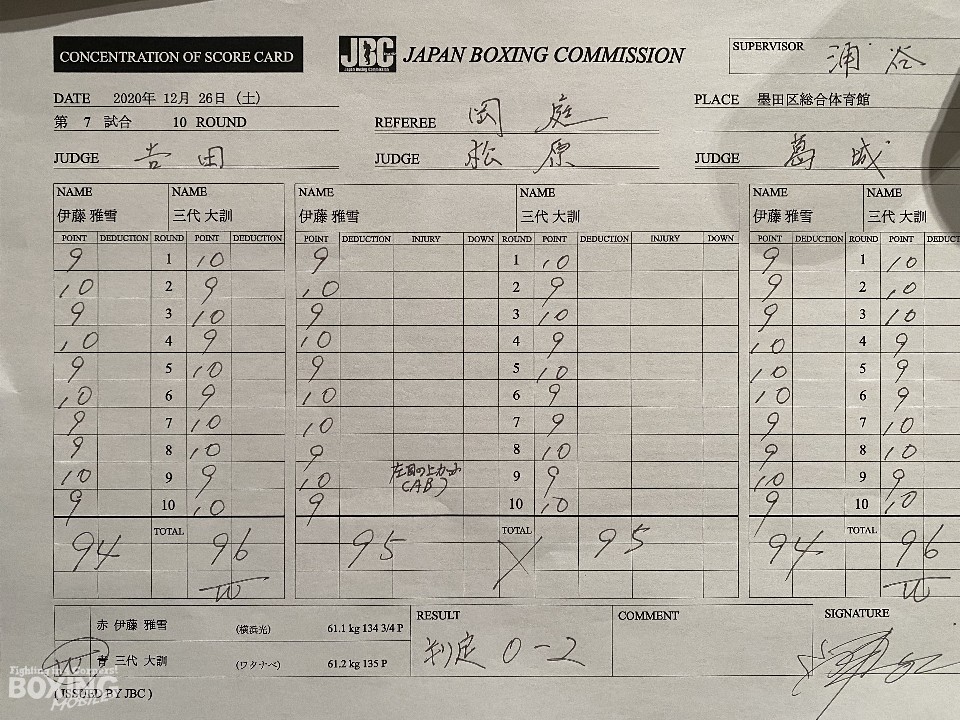 CONCENTRATION OF SCORE CARD
JBC JAPAN BOXING COMMISSION
SUPERVISOR 浦谷
DATE 2020年 12月 26日 (土)
PLACE 墨田区総合体育館
第 7 試合 10 ROUND
REFEREE 岡庭
JUDGE 吉田 JUDGE 松原 JUDGE 葛城
NAME NAME NAME NAME NAME NAME
伊藤 雅雪 三代 大訓 伊藤 雅雪 三代 大訓 伊藤 雅雪 三代 大訓
POINT DEDUCTION ROUND POINT DEDUCTION POINT DEDUCTION INJURY DOWN ROUND POINT DEDUCTION INJURY DOWN POINT DEDUCTION ROUND POINT DEDUCT
9 1 10 9 1 10 9 1 10
10 2 9 10 2 9 9 2 10
9 3 10 9 3 10 9 3 10
10 4 9 10 4 9 10 4 9
9 5 10 9 5 10 10 5 9
10 6 9 10 6 9 10 6 9
9 7 10 10 7 9 9 7 10
9 8 10 9 8 10 9 8 10
10 9 9 10 左目の上 (AB) 9 9 10 9 9
9 10 10 9 10 10 9 10 10
94 TOTAL 96 95 TOTAL 95 94 TOTAL 96
W W
赤 伊藤 雅雪 (横浜光) 61.1 kg 134 3/4 P
RESULT 判定 0-2
COMMENT
SIGNATURE
W 青 三代 大訓 (ワタナベ) 61.2 kg 135 P
(ISSUED BY JBC)
Fighting in 4 Corners!
BOXING
MOBILE